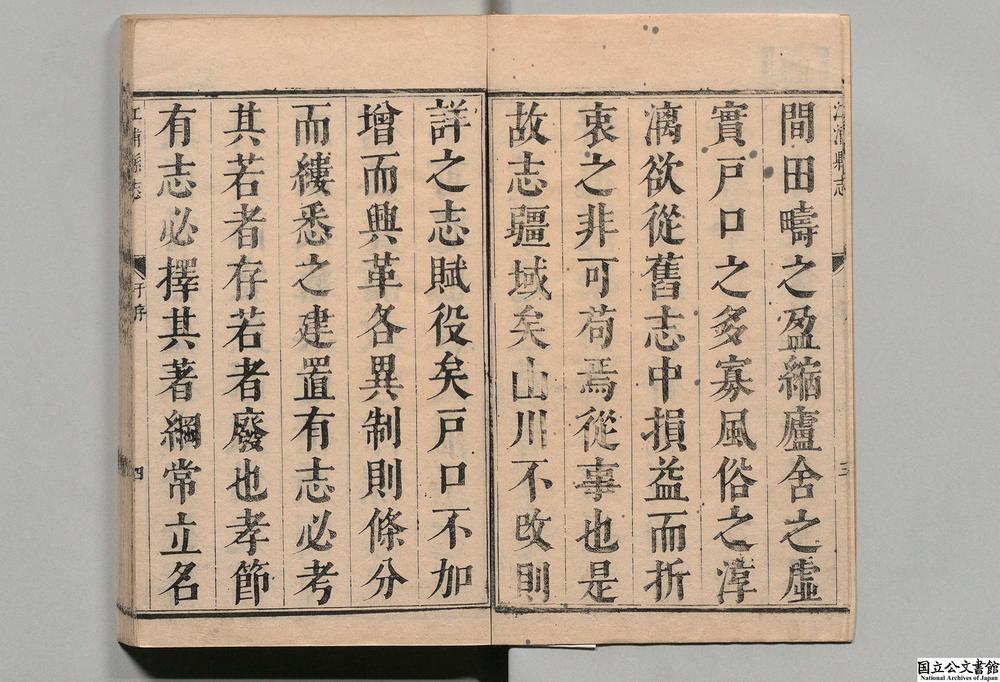 江浦縣志
三
間田疇之盈縮廬舍之虛
實戶口之多寡風俗之漳
漓欲從舊志中損益而折
衷之非可苟焉從事也是
故志疆域矣山川不改則
詳之志賦役矣戶口不加
增而興革各異制則條分
而縷悉之建置有志必考
其若者存若者廢也孝節
有志必擇其著綱常立名
江浦縣志
序
四
国立公文書館
National Archives of Japan